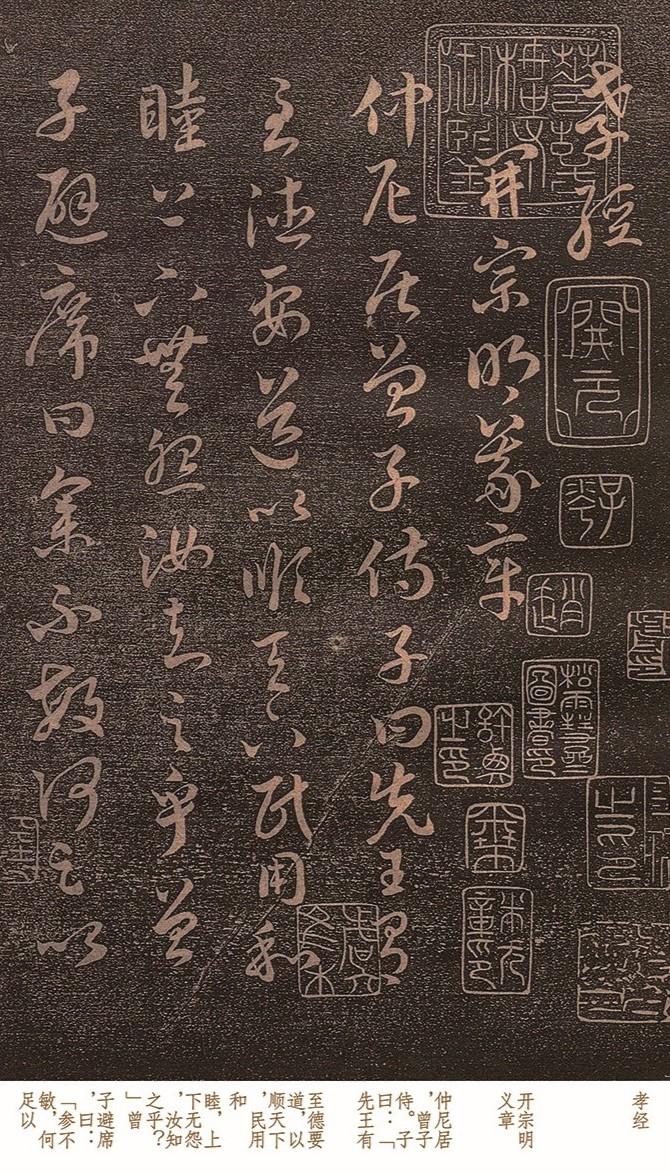 孝經
開宗明義章
仲尼居曾子侍子曰先王有
至德要道以順天下民用和
睦上下無怨汝知之乎曾
子避席曰參不敏何足以
開元
趙
孝经
开宗明
义章
仲尼居
，曾子
侍。子
曰：「
先王有
至德要
道，以
顺天下
，民用
和
睦，上
下无怨
，汝知
之乎？
」曾
子避席
，曰：
「参不
敏，何
足以